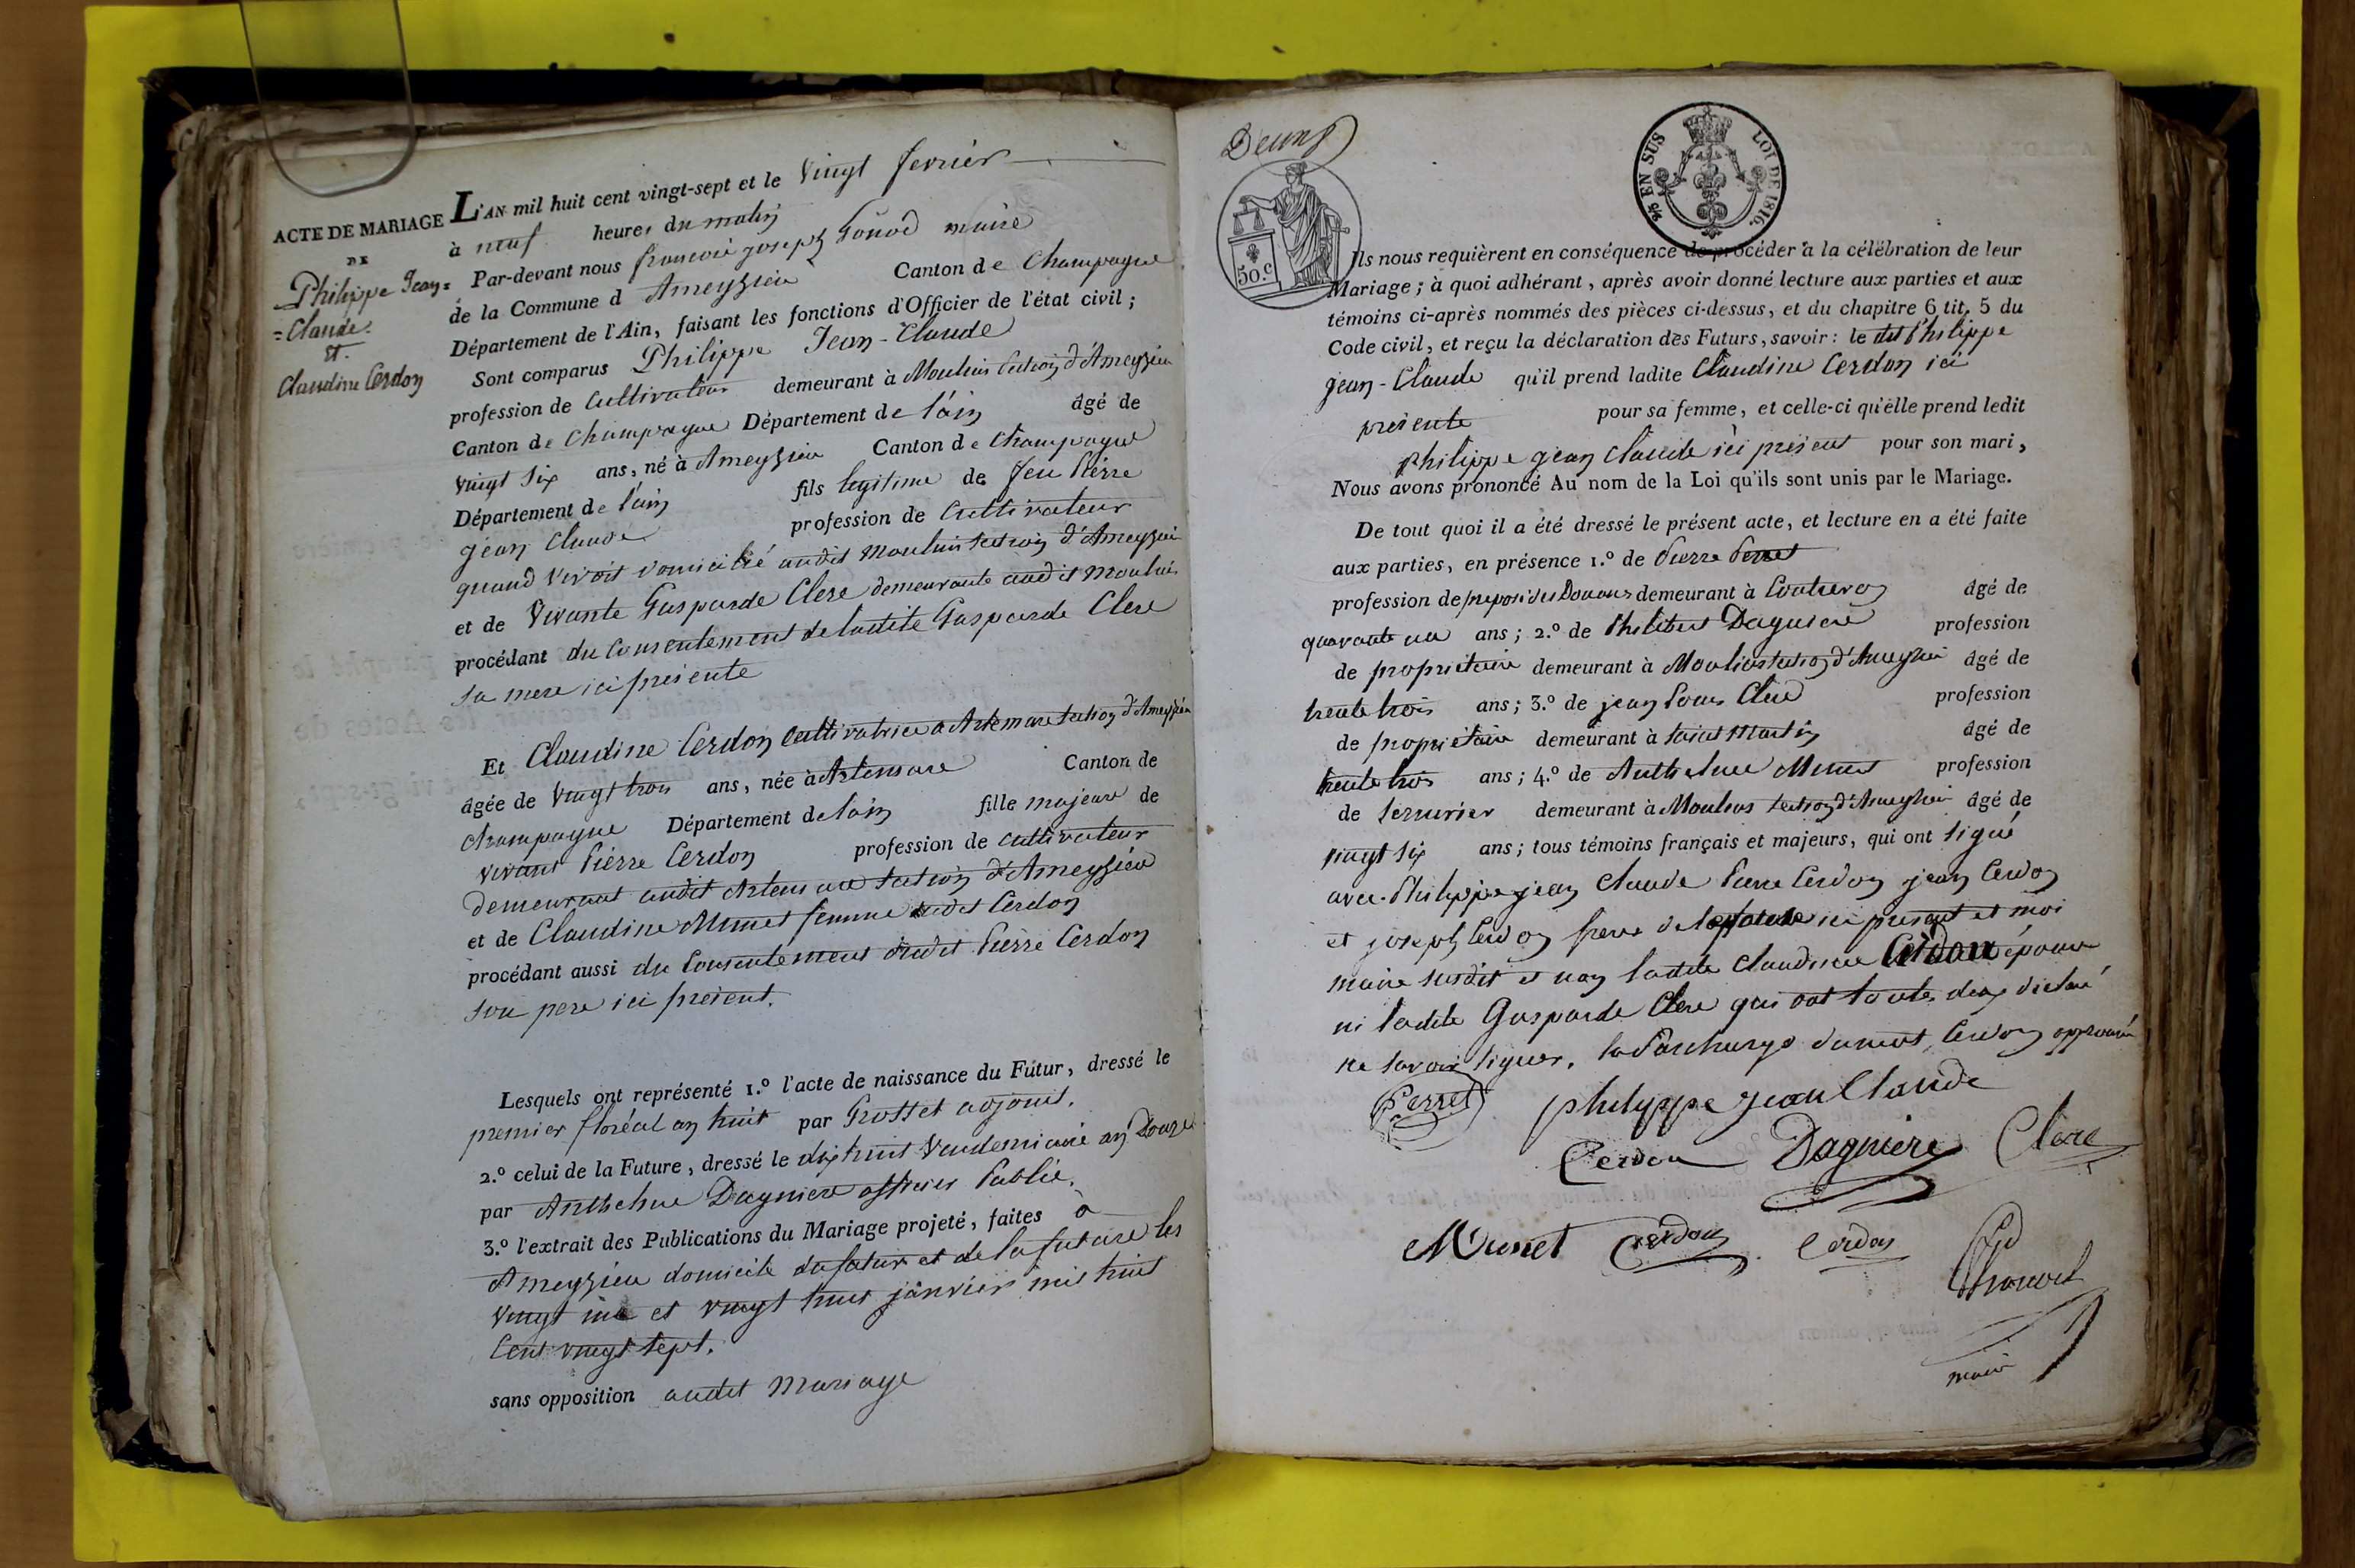 ACTE DE MARIAGE
DE
Philippe Jean=
=Claude.
Et.
Claudine Cerdon
L'AN mil huit cent vingt-sept et le vingt fevrier
à neuf heures du matin
Par-devant nous francois joseph maire
de la Commune d Ameyzieu Canton de Champagne
Département de l'Ain, faisant les fonctions d'Officier de l'état civil;
Sont comparus Philippe Jean-Claude
profession de Cultivateur demeurant à Moulins section d'Ameyzieu
Canton de Champagne Département de l'ain âgé de
vingt six ans, né à Ameyzieu Canton de Champagne
Département de l'ain fils legitime de feu Pierre
jean Claude profession de Cultivateur
quand vivoit domicilié audit Moulins section d'Ameyzieu
et de Vivante Gasparde Clere demeurante audit moulins
procédant du Consentement de ladite Gasparde Clere
sa mere ici presente
Et Claudine Cerdon Cultivatrice a Artemare section d'Ameyzieu
âgée de vingt trois ans, née à Artemare Canton de
Champagne Département de l'ain fille majeure de
vivant Pierre Cerdon profession de cultivateur
demeurant audit Artemare section d'Ameyzieu
et de Claudine Munet femme dudit Cerdon
procédant aussi du Consentement dudit Pierre Cerdon
son pere ici present.
Lesquels ont représenté 1.º l'acte de naissance du Futur, dressé le
premier floréal an huit par Grosset adjoint.
2.º celui de la Future, dressé le dix huit Vendemiaire an Douze
par Anthelme Dagniere officier Public.
3.º l'extrait des Publications du Mariage projeté, faites à
Ameyzieu domicile du futur et de la future les
vingt un et vingt huit janvier mil huit
Cent vingt sept.
sans opposition audit Mariage
50.c
EN SUS LOI DE 1816.
Ils nous requièrent en conséquence de procéder à la célébration de leur
Mariage; à quoi adhérant, après avoir donné lecture aux parties et aux
témoins ci-après nommés des pièces ci-dessus, et du chapitre 6 tit. 5 du
Code civil, et reçu la déclaration des Futurs, savoir: le dit Philippe
jean-Claude qu'il prend ladite Claudine Cerdon ici
presente pour sa femme, et celle-ci qu'elle prend ledit
philippe jean claude ici present pour son mari,
Nous avons prononcé Au nom de la Loi qu'ils sont unis par le Mariage.
De tout quoi il a été dressé le présent acte, et lecture en a été faite
aux parties, en présence 1.º de Pierre Perret
profession de preposé des Douanes demeurant à âgé de
quarante un ans; 2.º de Philibert Dagniere profession
de proprietaire demeurant à Moulins section d'Ameyzieu âgé de
trente trois ans; 3.º de jean Louis Clere profession
de proprietaire demeurant à saint Martin âgé de
trente trois ans; 4.º de Anthelme Munet profession
de serrurier demeurant à Moulins section d'Ameyzieu âgé de
vingt six ans; tous témoins français et majeurs, qui ont signé
avec Philippe jean Claude Pierre Cerdon jean Cerdon
et joseph Cerdon frere de lepouse ici present et moi
maire susdit et non ladite Claudine Cerdon épouse
ni ladite Gasparde Clere qui ont toutes deux déclaré
ne savoir signer. la Surcharge du mot Cerdon approuvé
Perret philyppe jean Claude
Cerdon Dagniere Clere
Munet Cerdon Cerdon
maire